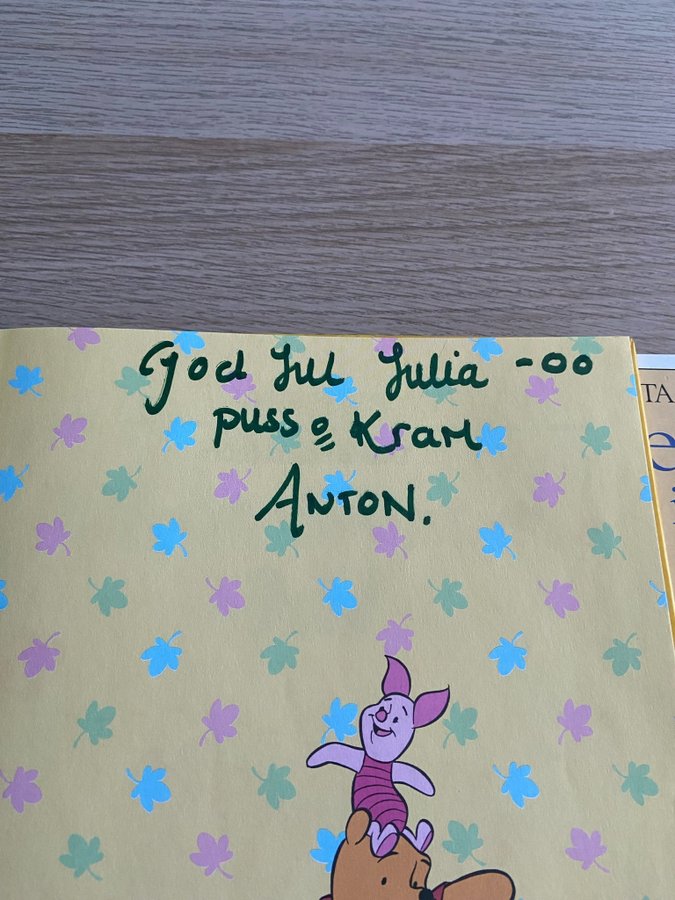 God Jul Julia -00
puss o Kram
ANTON.
TA
e